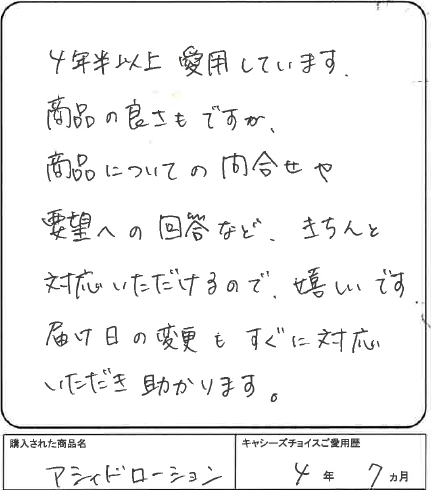 4年半以上 愛用しています.
商品の良さもですが、
商品についての問合せや
要望への回答など、きちんと
対応いただけるので、嬉しいです
届け日の変更もすぐに対応
いただき助かります。
購入された商品名
アシィドローション
キャシーズチョイスご愛用歴
4 年 7 ヵ月